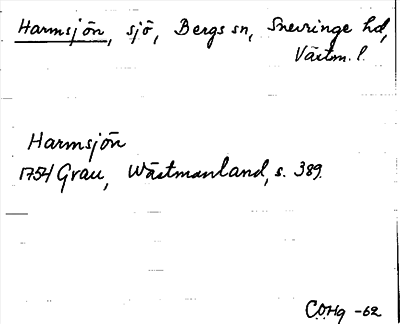 Harmsjön, sjö, Bergs sn, Snevringe hd,
Västm. l.
Harmsjön
1754 Grau, Wästmanland, s. 389.
COHg -62